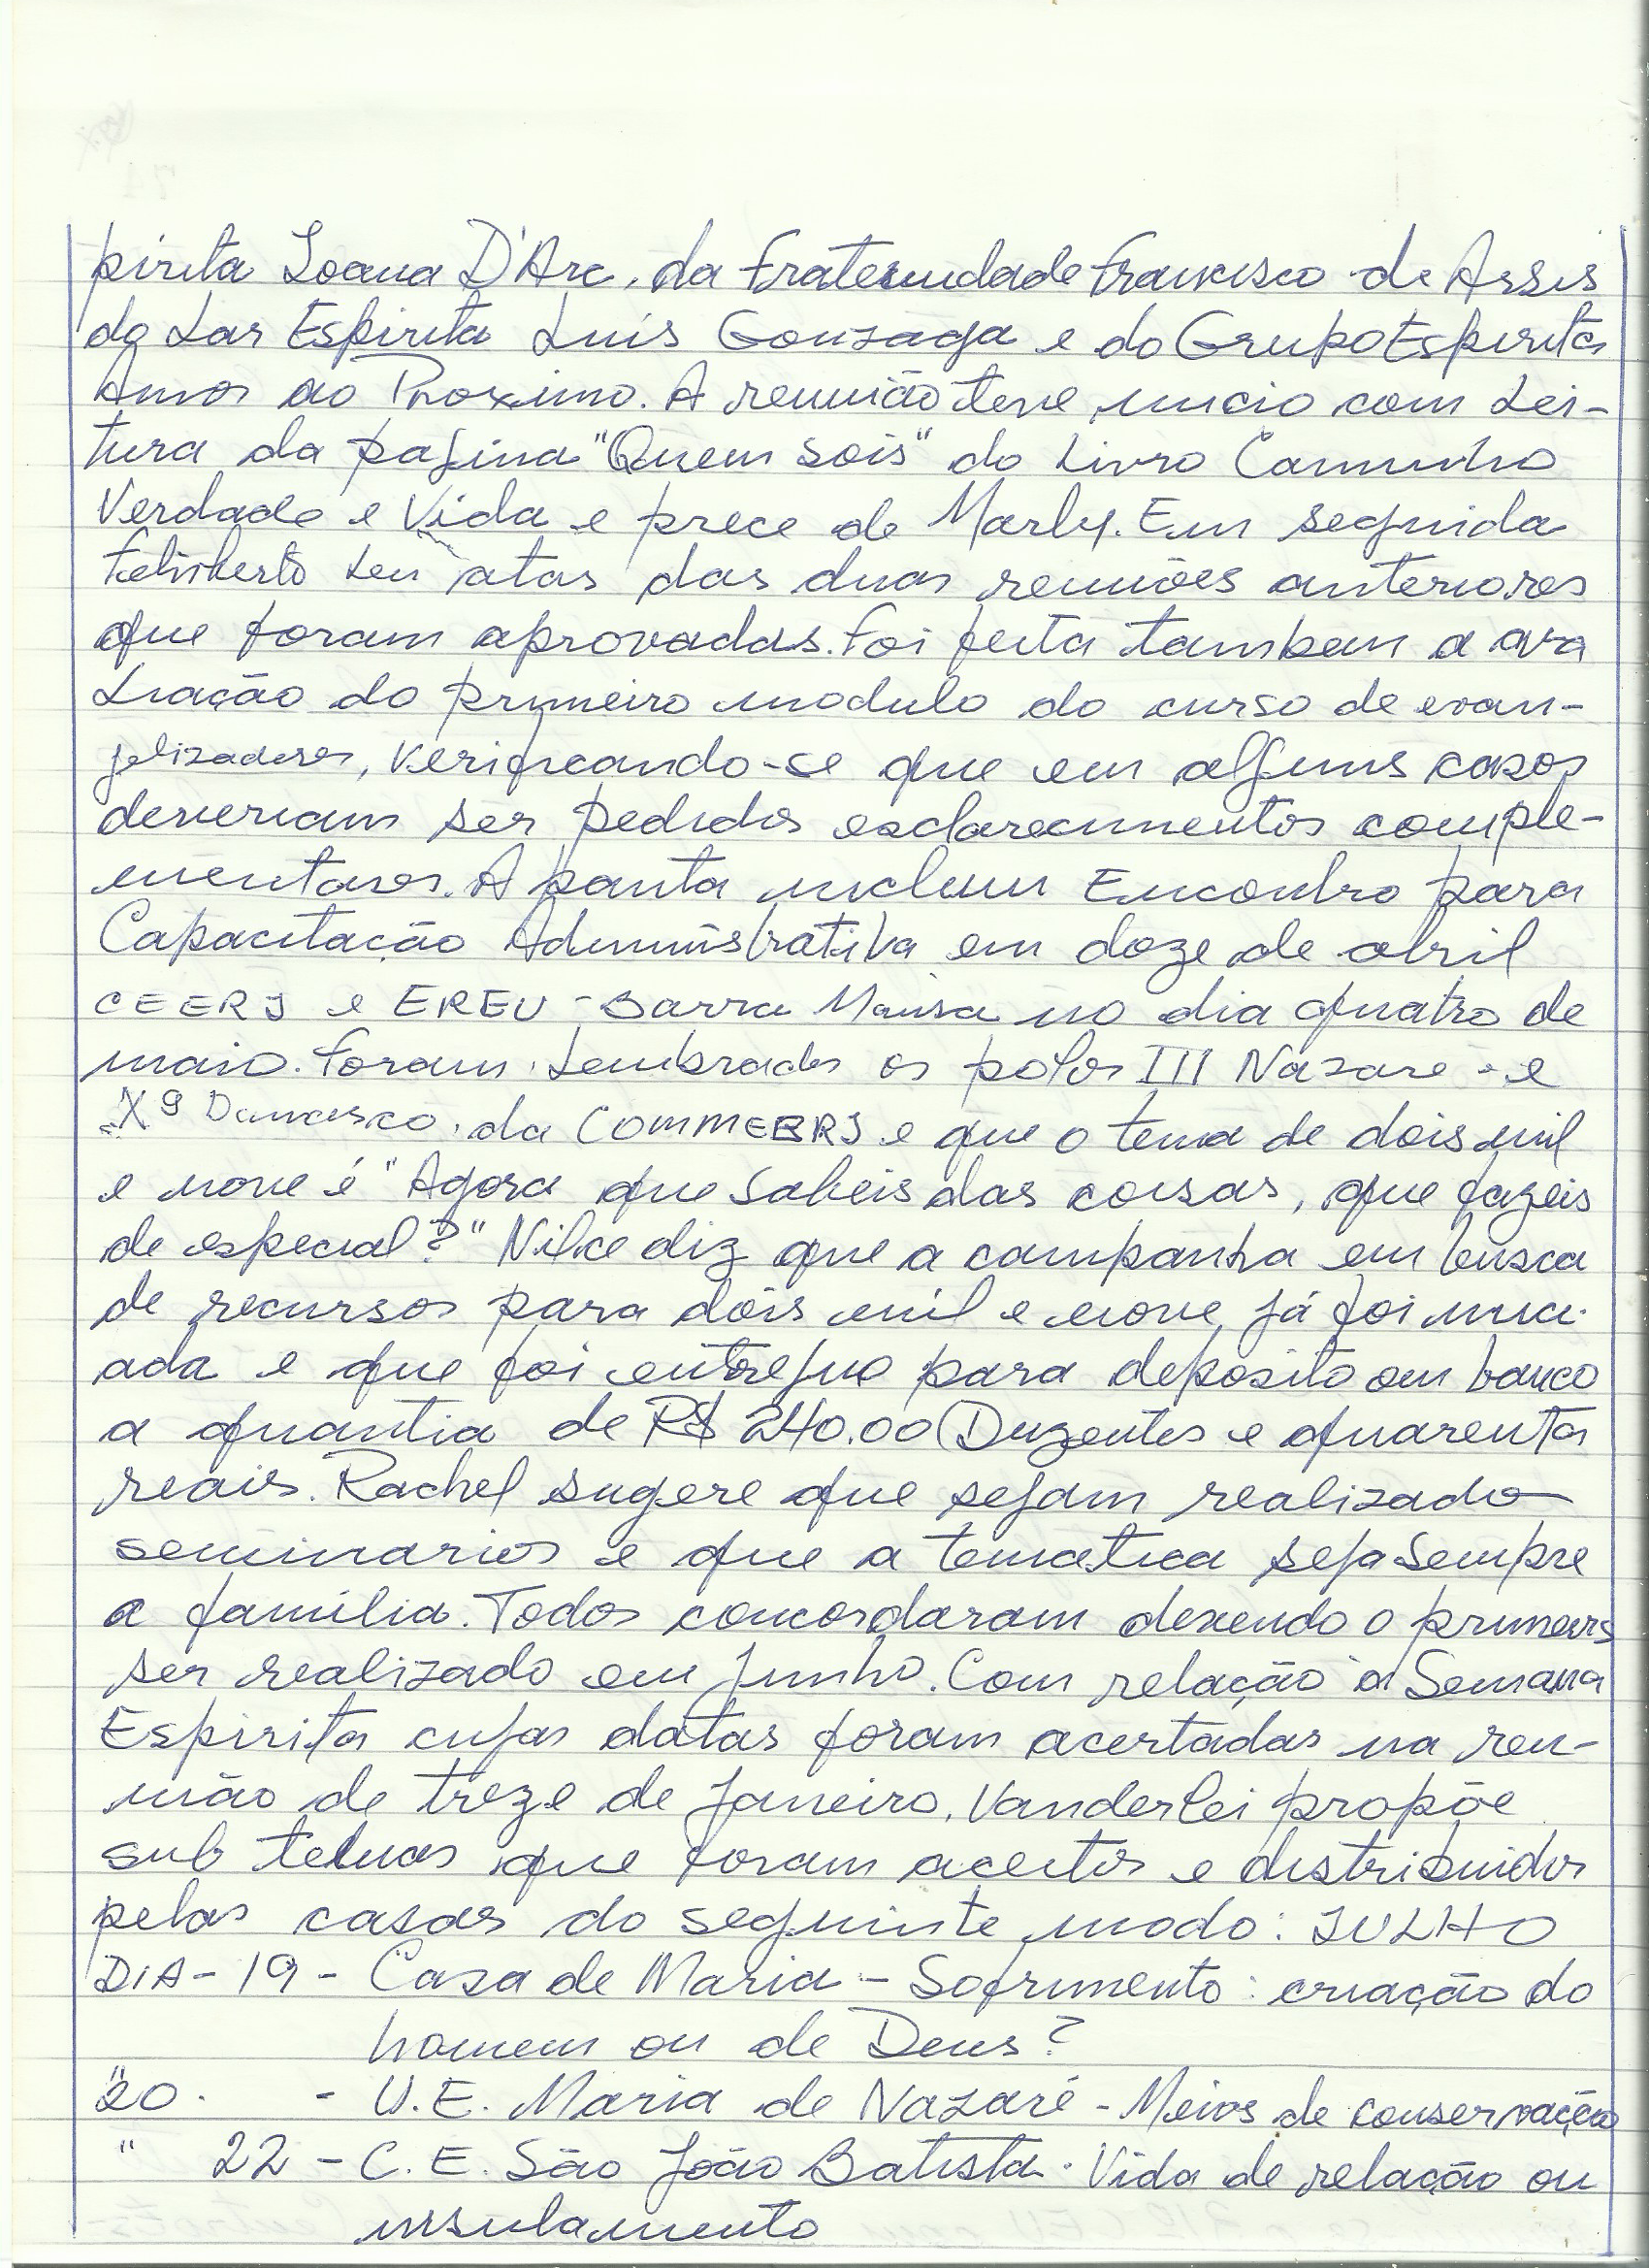 pirita Joana D'Arc, da Fraternidade Francisco de Assis
do Lar Espirita Luís Gonzaga e do Grupo Espirita
Amor ao Proximo. A reunião teve inicio com Lei-
tura da pagina "Quem sois" do Livro Caminho
Verdade e Vida e prece de Marly. Em seguida
Felisberto leu atas das duas reuniões anteriores
que foram aprovadas. Foi feita tambem a ava
liação do primeiro modulo do curso de evan-
gelizadores, verificando-se que em alguns casos
deveriam ser pedidos esclarecimentos comple-
mentares. A pauta incluiu Encontro para
Capacitação Administrativa em doze de abril
CEERJ e EREU - Barra Mansa no dia quatro de
maio. Foram lembrados os polos III Nazare - e
Xº Damasco, da COMMEERJ e que o tema de dois mil
e nove é "Agora que sabeis das coisas, que fazeis
de especial?" Nilce diz que a campanha em busca
de recursos para dois mil e nove já foi inici-
ada e que foi entregue para deposito em banco
a quantia de R$ 240.00 (Duzentos e quarenta
reais. Rachel sugere que sejam realizado
seminarios e que a tematica seja sempre
a família. Todos concordaram devendo o primeiro
ser realizado em junho. Com relação à Semana
Espirita cujas datas foram acertadas na reu-
nião de treze de janeiro, Vanderlei propõe
sub temas que foram aceitos e distribuidos
pelas casas do seguinte modo: JULHO
DIA - 19 - Casa de Maria - Sofrimento: criação do
homem ou de Deus?
" 20. - U.E. Maria de Nazaré - Meios de conservação
" 22 - C.E. São João Batista. Vida de relação ou
insulamento